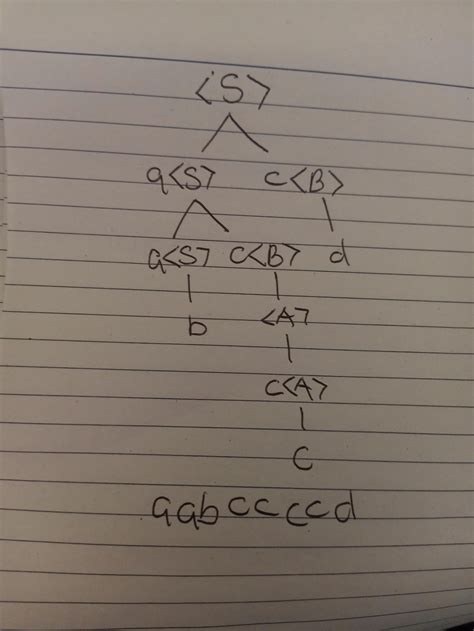 <S>
a<S> c<B>
a<S> c<B> d
b <A>
c<A>
c
aabccccd